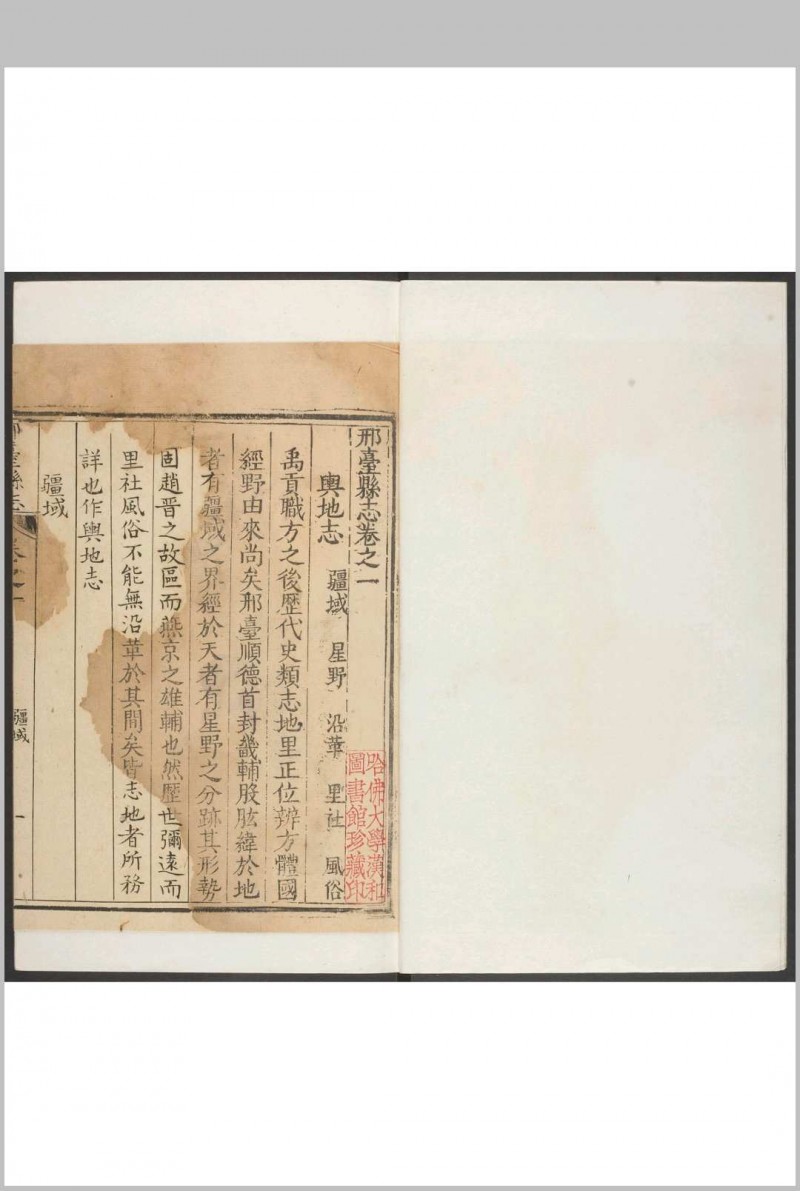 邢臺縣志卷之一
輿地志 疆域 星野 沿革 里社 風俗
禹貢職方之後歷代史類志地里正位辨方體國
經野由來尚矣邢臺順德首封畿輔股肱緯於地
者有疆域之界經於天者有星野之分跡其形勢
固趙晉之故區而燕京之雄輔也然歷世彌遠而
里社風俗不能無沿革於其間矣皆志地者所務
詳也作輿地志
疆域
邢臺縣志 卷之一 疆域 一
哈佛大學漢和
圖書館珍藏印